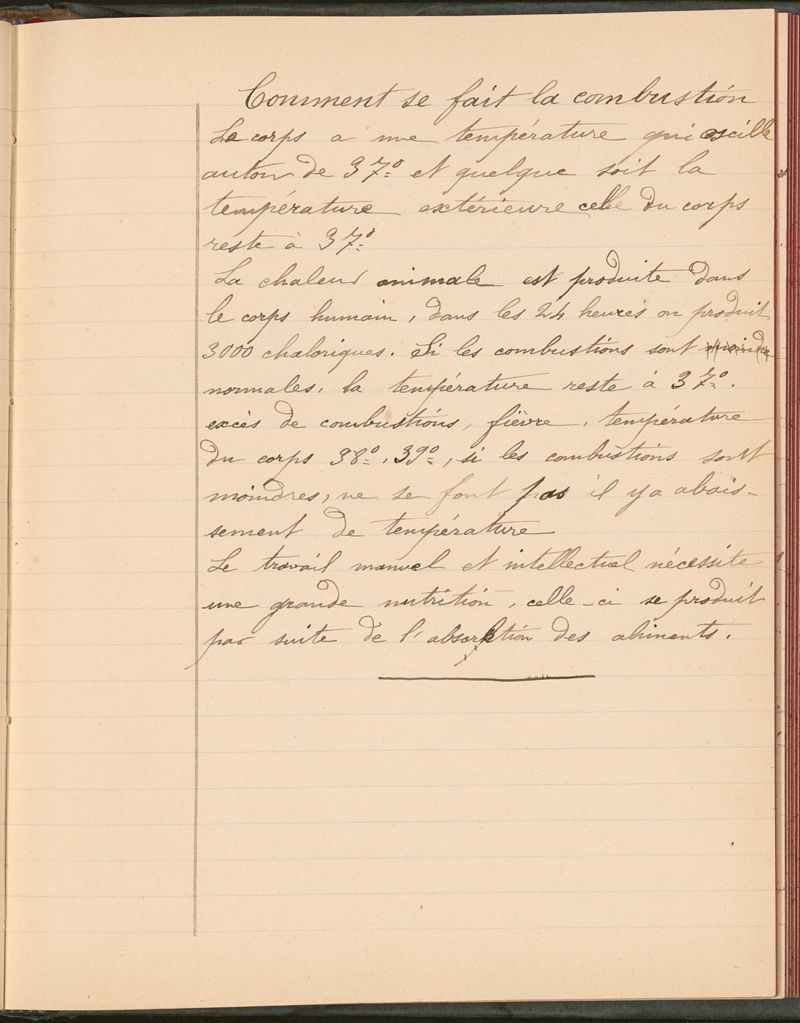 Comment se fait la combustion
Le corps a une température qui oscille
autour de 37° et quelque soit la
température extérieure celle du corps
reste à 37°
La chaleur animale est produite dans
le corps humain, dans les 24 heures on produit
3000 chaloriques. Si les combustions sont moindre
normales, la température reste à 37°.
excès de combustions, fièvre, température
du corps 38°, 39°, si les combustions sont
moindres, ne se font pas il y a abais-
sement de température
Le travail manuel et intellectuel nécessite
une grande nutrition, celle-ci se produit
par suite de l'absorption des aliments.